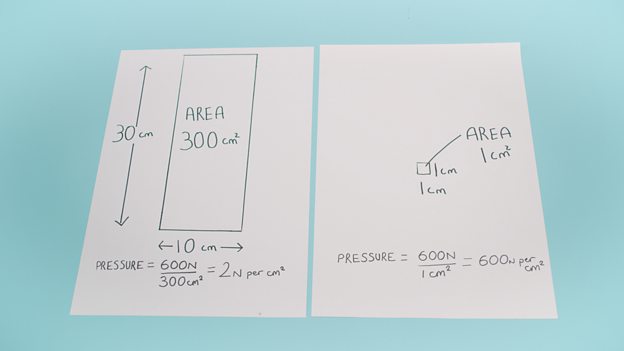 AREA
300 cm²
30 cm
10 cm
PRESSURE = 600N / 300cm² = 2N per cm²
AREA
1 cm²
1cm
1cm
PRESSURE = 600N / 1cm² = 600N per cm²